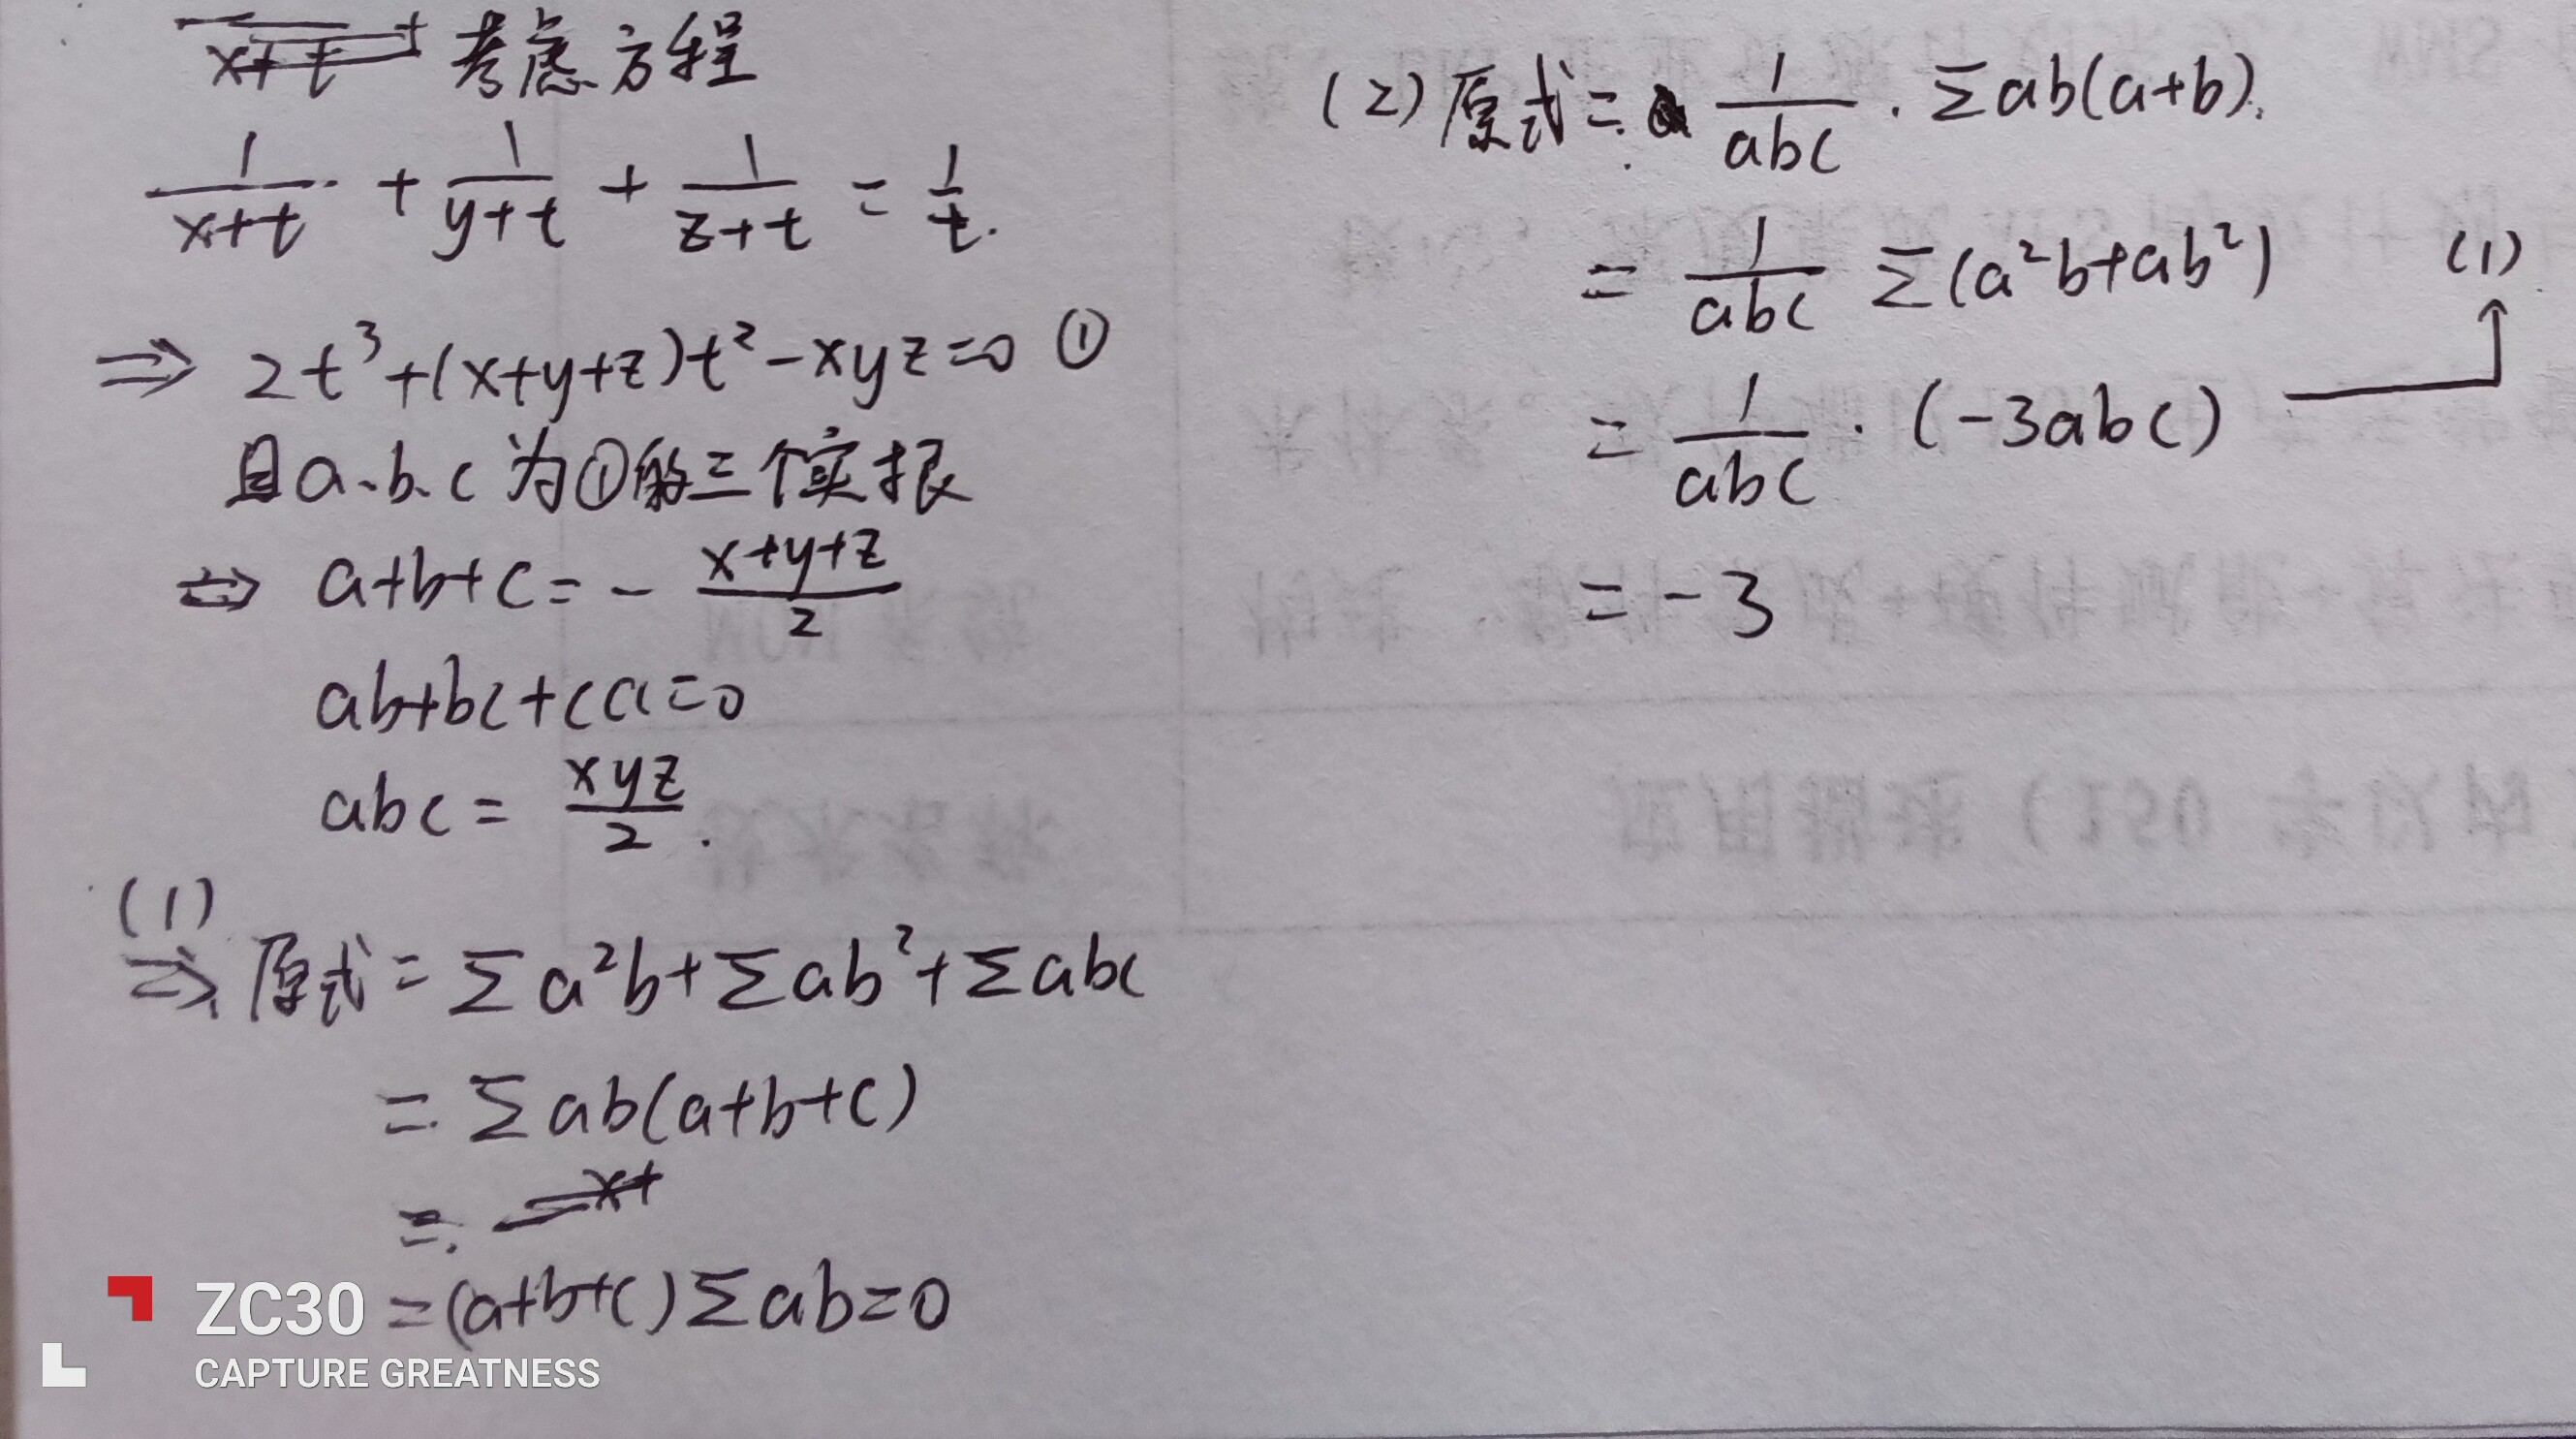 考虑方程
1/(x+t) + 1/(y+t) + 1/(z+t) = 1/t.
⇒ 2t³+(x+y+z)t²-xyz=0 ①
且a、b、c为①的三个实根
⇒ a+b+c = - (x+y+z)/2
ab+bc+ca=0
abc = xyz/2.
(1)
⇒ 原式 = Σa²b+Σab²+Σabc
= Σab(a+b+c)
=
=(a+b+c)Σab=0
(2) 原式 = 1/abc · Σab(a+b).
= 1/abc Σ(a²b+ab²) (1)
= 1/abc · (-3abc)
= -3
ZC30
CAPTURE GREATNESS